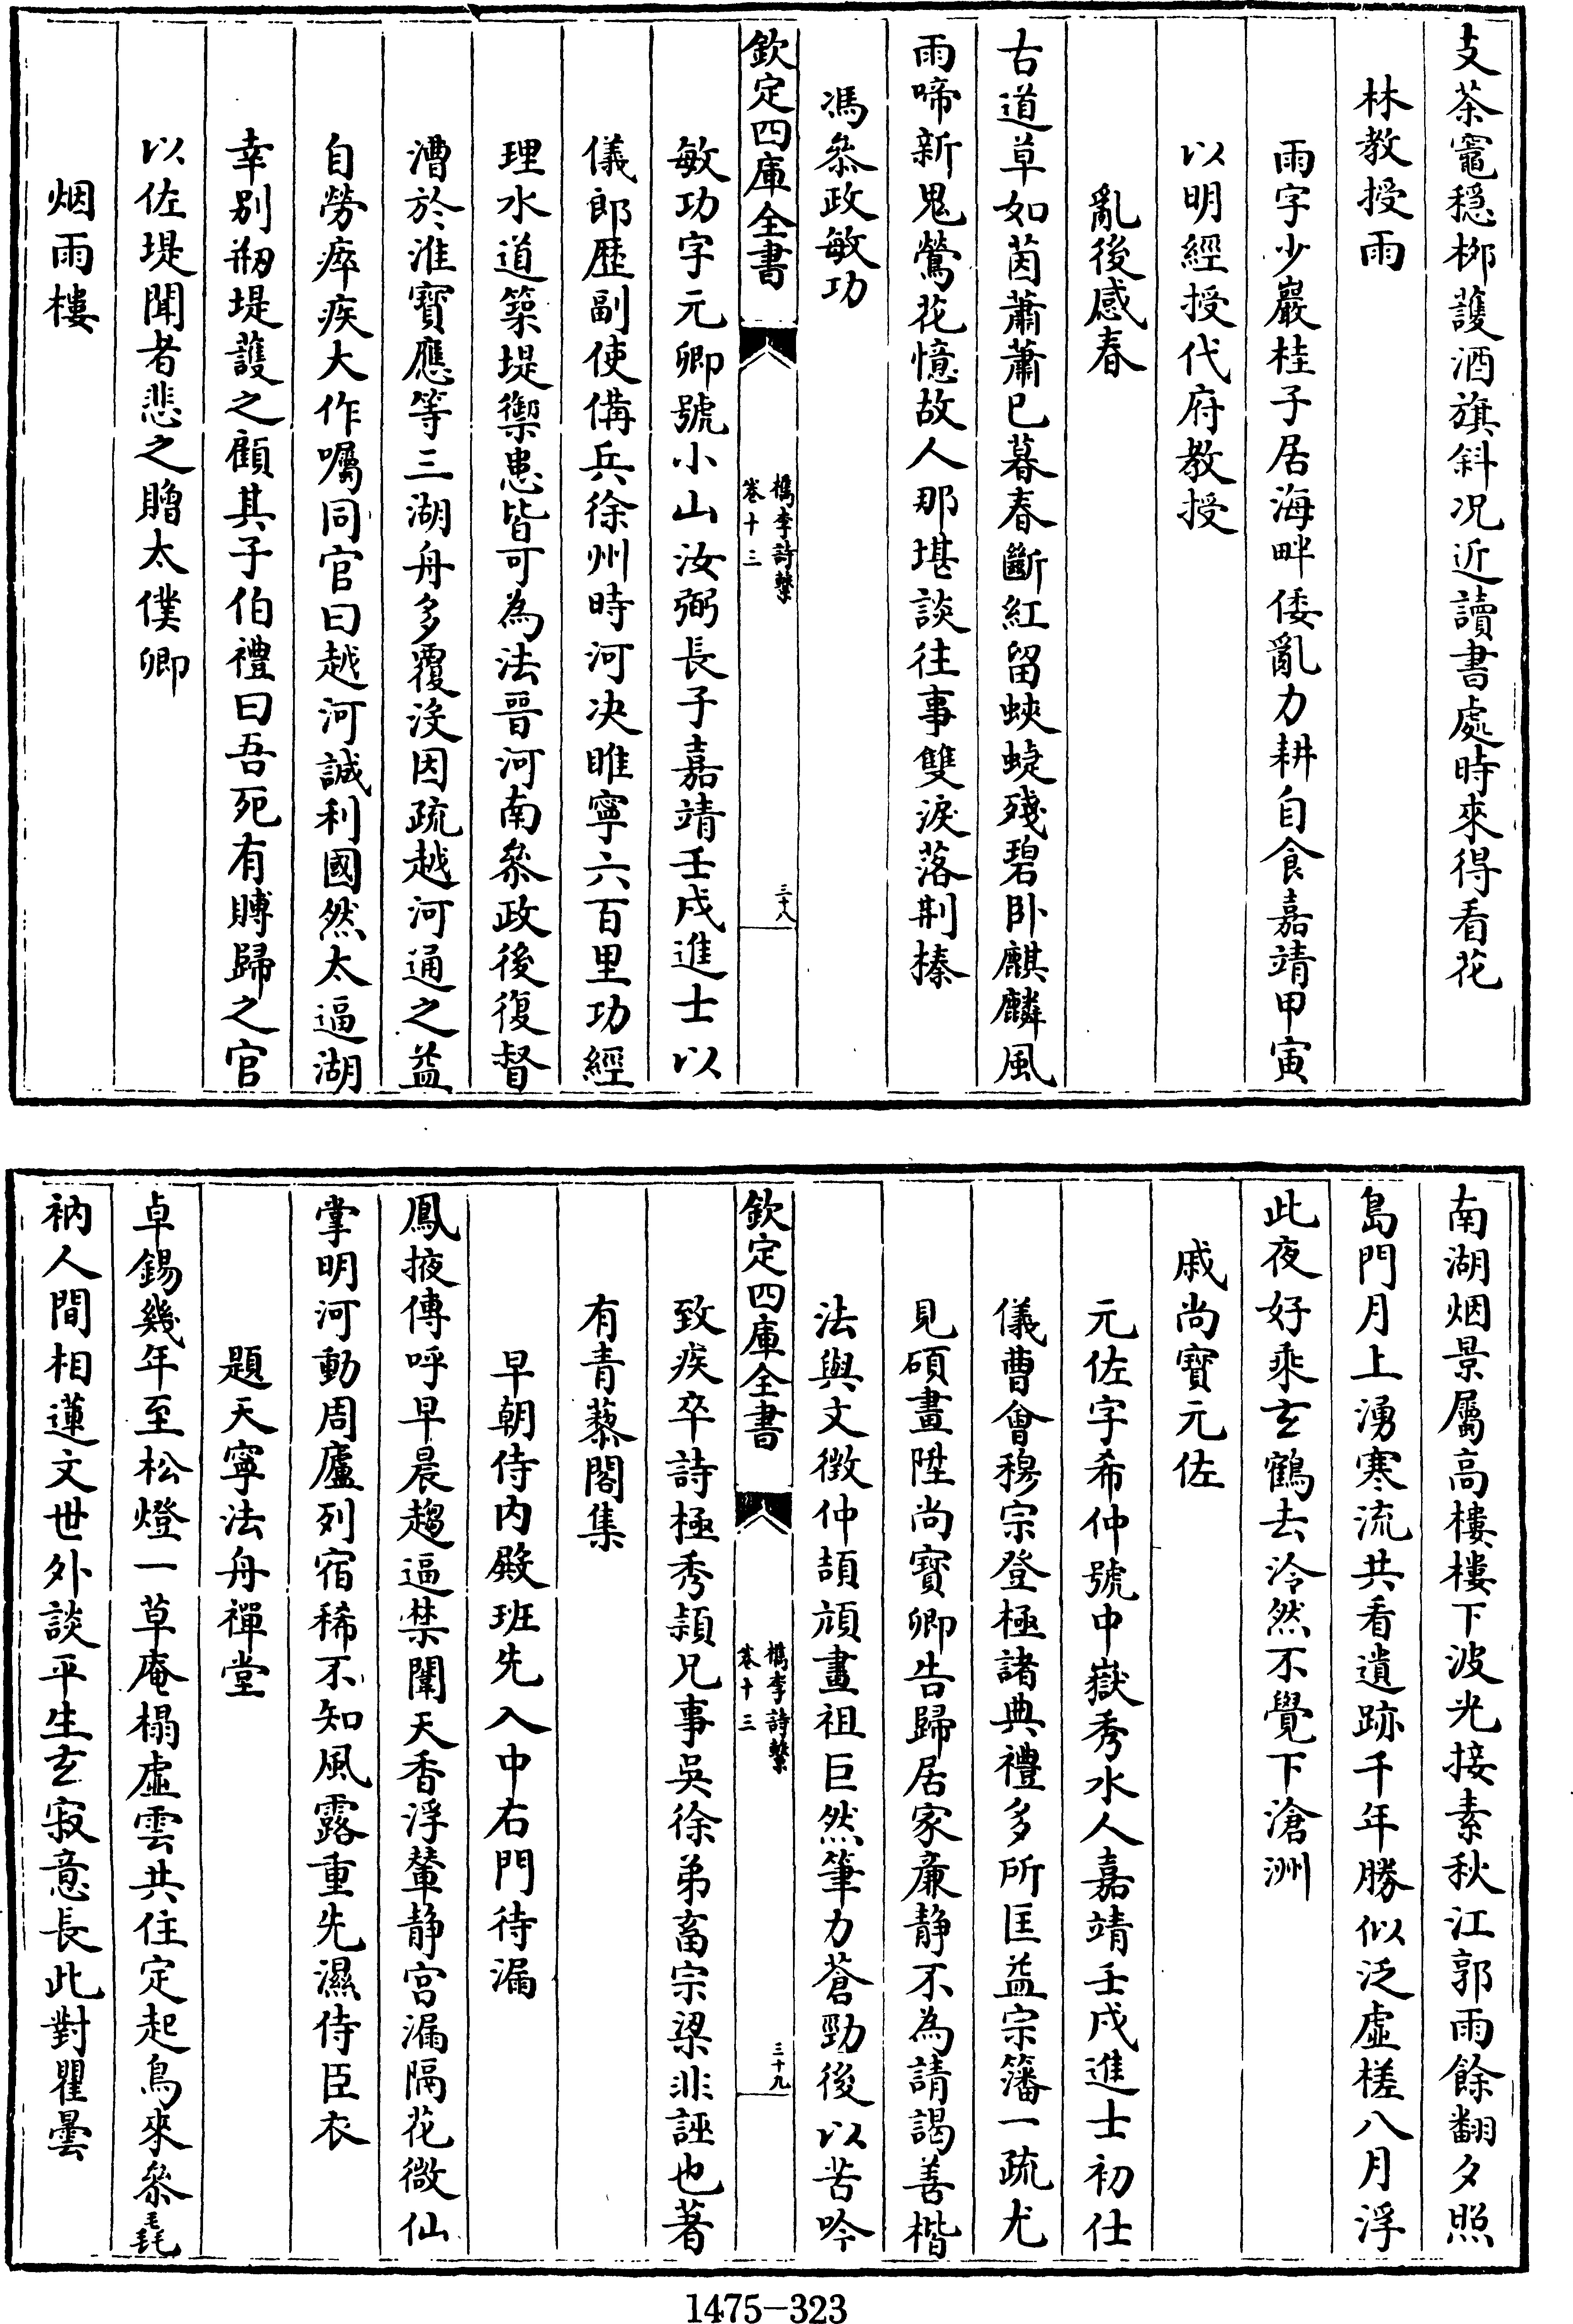 支茶竈穏栁䕶酒旗斜况近讀書處時來得看花
林教授雨
雨字少巖桂子居海畔倭亂力耕自食嘉靖甲寅
以明經授代府教授
亂後感春
古道草如茵蕭蕭已暮春斷紅留蛺蜨殘碧卧麒麟風
雨啼新鬼鶯花憶故人那堪談往事雙淚落荆榛
馮叅政敏功
欽定四庫全書
檇李詩繫
卷十三
三十八
敏功字元卿號小山汝弼長子嘉靖壬戌進士以
儀郎歴副使備兵徐州時河决睢寧六百里功經
理水道築堤禦患皆可為法晉河南叅政後復督
漕於淮寳應等三湖舟多覆没因疏越河通之益
自勞瘁疾大作囑同官曰越河誠利國然太逼湖
幸别剏堤䕶之顧其子伯禮曰吾死有賻歸之官
以佐堤聞者悲之贈太僕卿
烟雨樓
南湖烟景屬高樓樓下波光接素秋江郭雨餘翻夕照
島門月上湧寒流共看遺跡千年勝似泛虛槎八月浮
此夜好乘玄鶴去泠然不覺下滄洲
戚尚寳元佐
元佐字希仲號中嶽秀水人嘉靖壬戌進士初仕
儀曹會穆宗登極諸典禮多所匡益宗籓一疏尤
見碩畫陞尚寳卿告歸居家亷静不為請謁善楷
法與文徵仲頡頏畫祖巨然筆力蒼勁後以苦吟
欽定四庫全書
檇李詩繫
卷十三
三十九
致疾卒詩極秀頴兄事吳徐弟畜宗梁非誣也著
有青藜閣集
早朝侍内殿班先入中右門待漏
鳳掖傳呼早晨趨逼禁闈天香浮輦静宫漏隔花微仙
掌明河動周廬列宿稀不知風露重先濕侍臣衣
題天寧法舟禪堂
卓錫幾年至松燈一草庵榻虛雲共住定起鳥來叅毳
衲人間相蓮文世外談平生玄寂意長此對瞿曇
1475-323